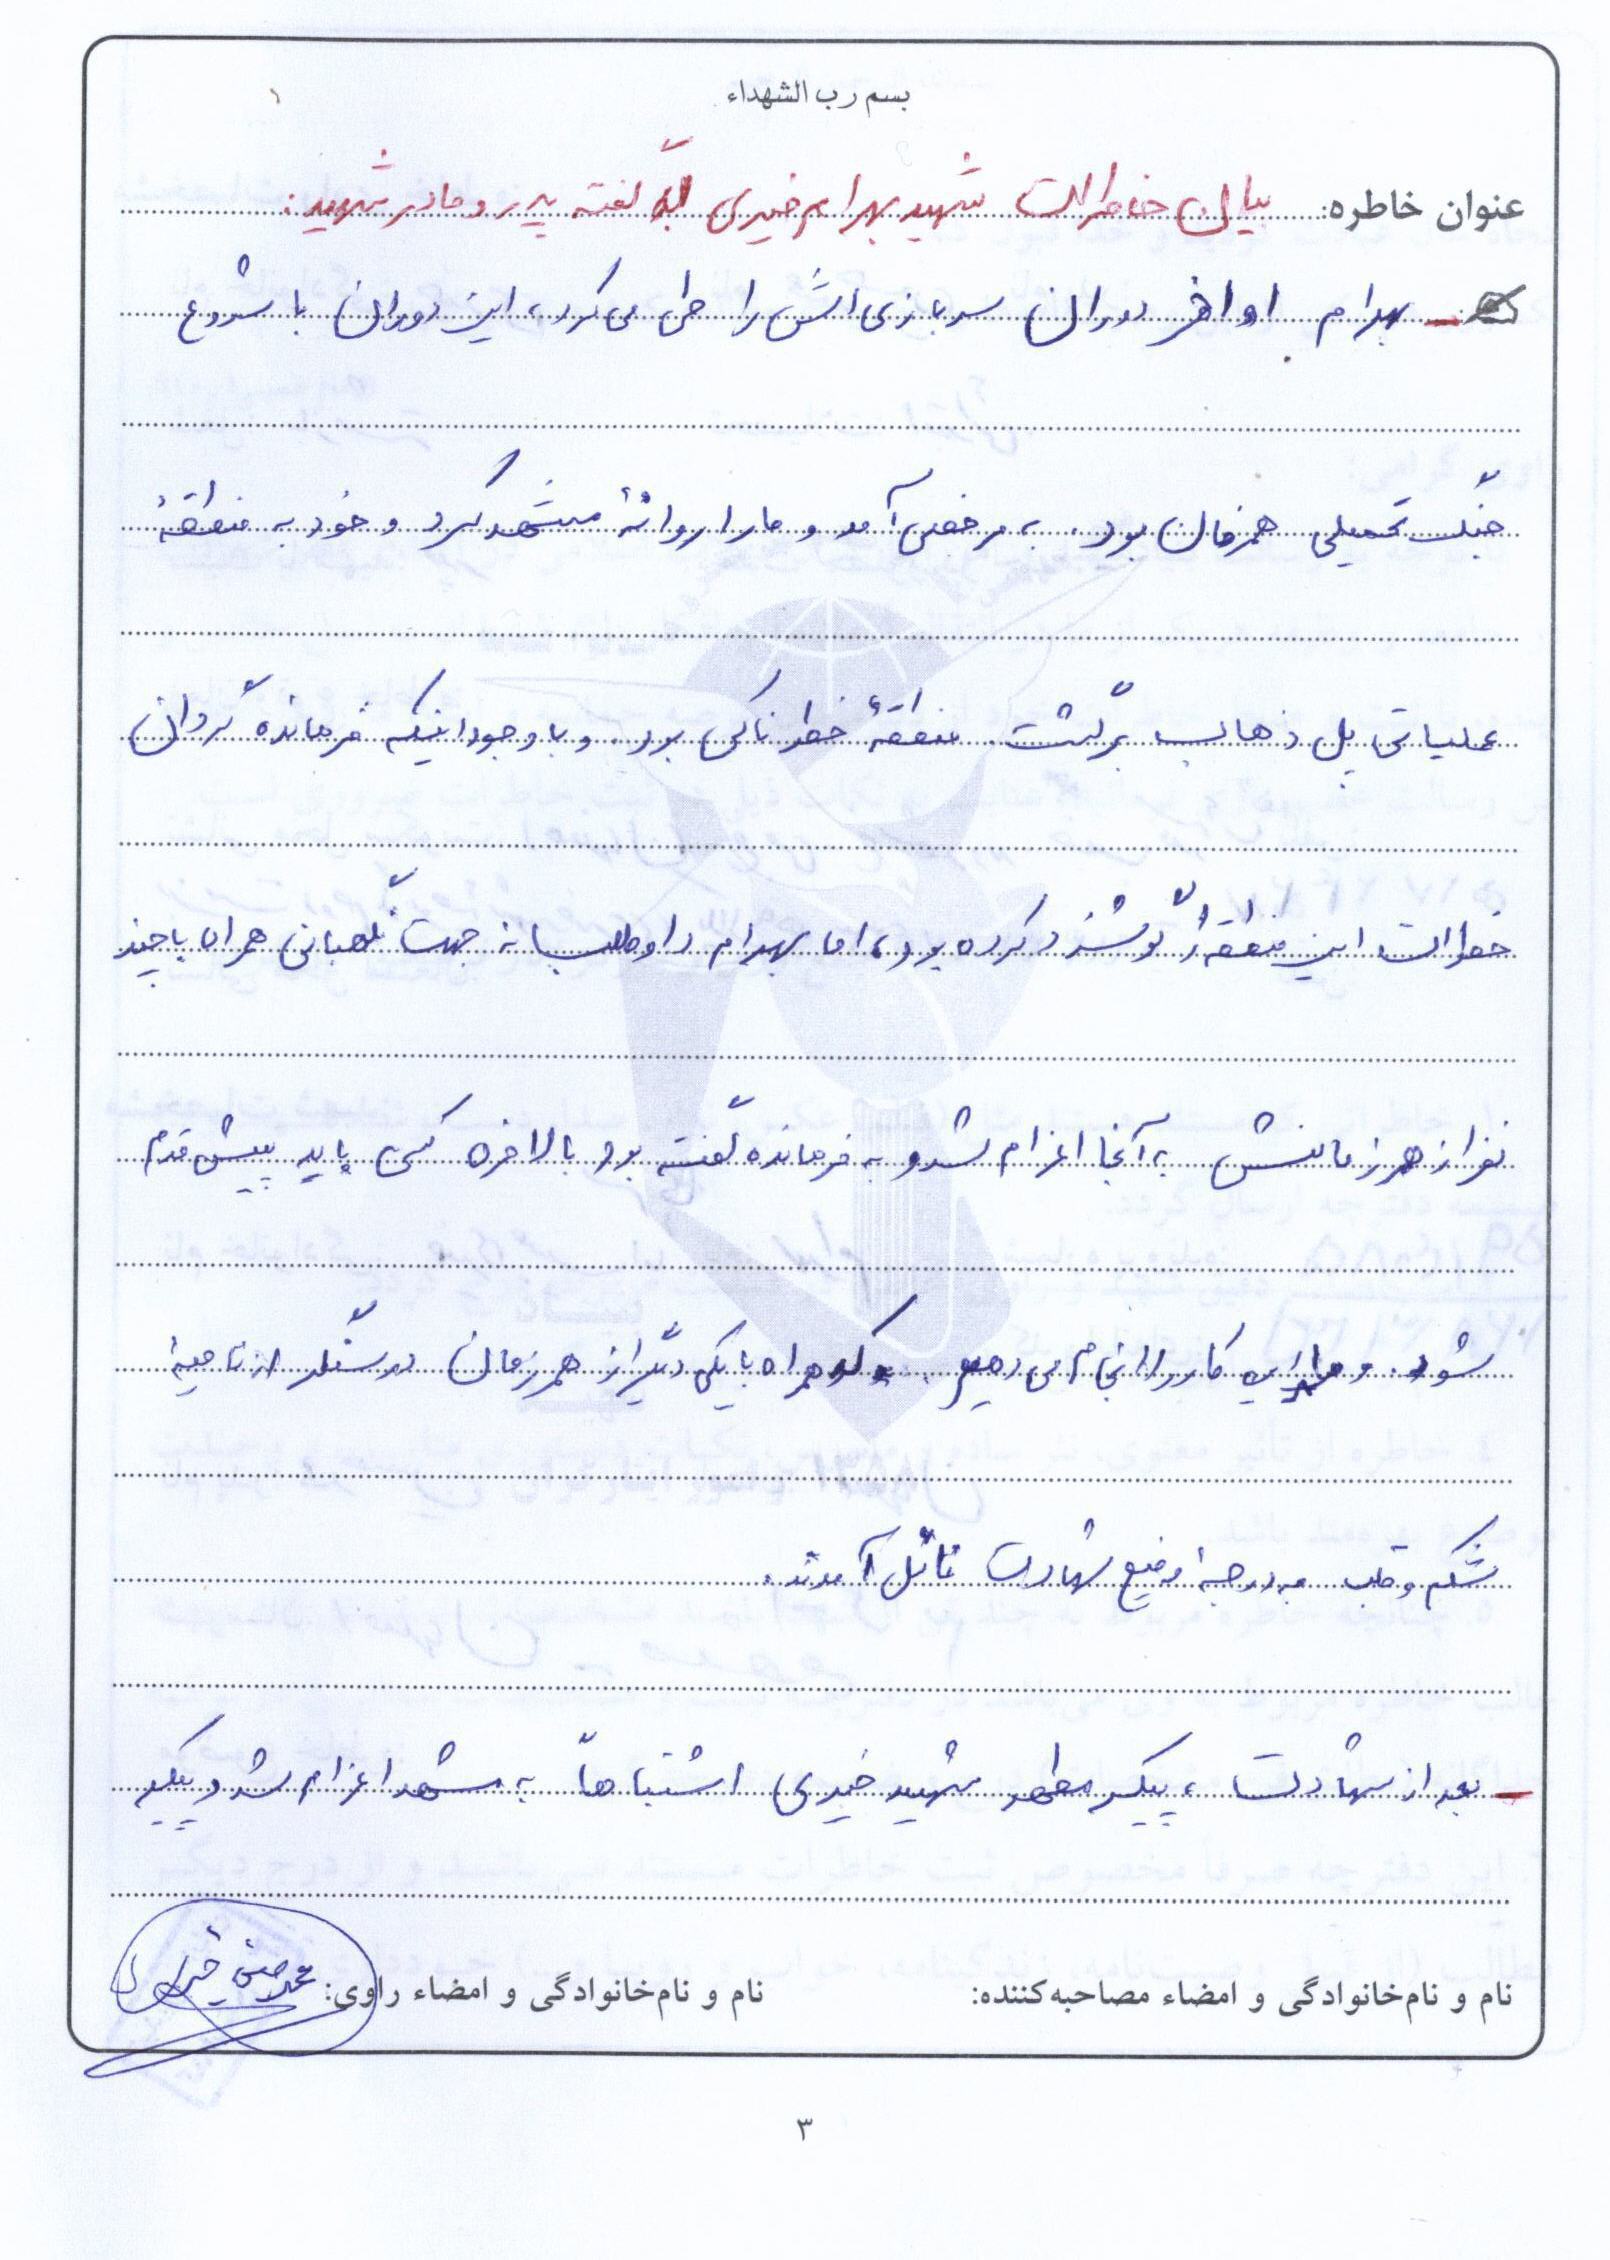 بسم رب الشهداء
۱
عنوان خاطره: بیان خاطرات شهید بهرام خیری به گفته پدر و مادر شهید:
- بهرام اواخر دوران سربازی‌اش را طی می‌کرد، این دوران با شروع
جنگ تحمیلی همزمان بود. به مرخصی آمد و ما را روانهٔ مشهد کرد و خود به منطقهٔ
عملیاتی پل ذهاب برگشت. منطقهٔ خطرناکی بود. و با وجود اینکه فرمانده گردان
خطرات این منطقه را گوشزد کرده بود، اما بهرام داوطلبانه جهت نگهبانی همراه با چند
نفر از همرزمانش به آنجا اعزام شد و به فرمانده گفته بود بالاخره کسی باید پیش قدم
شود. و ما این کار را انجام می‌دهیم. که همراه با یکی دیگر از همرزمان در سنگر از ناحیهٔ
شکم و قلب به درجهٔ رفیع شهادت نائل آمدند.
- بعد از شهادت، پیکر مطهر شهید خیری اشتباهاً به مشهد اعزام شد و پیکر
نام و نام‌خانوادگی و امضاء مصاحبه‌کننده:
نام و نام‌خانوادگی و امضاء راوی:
۳